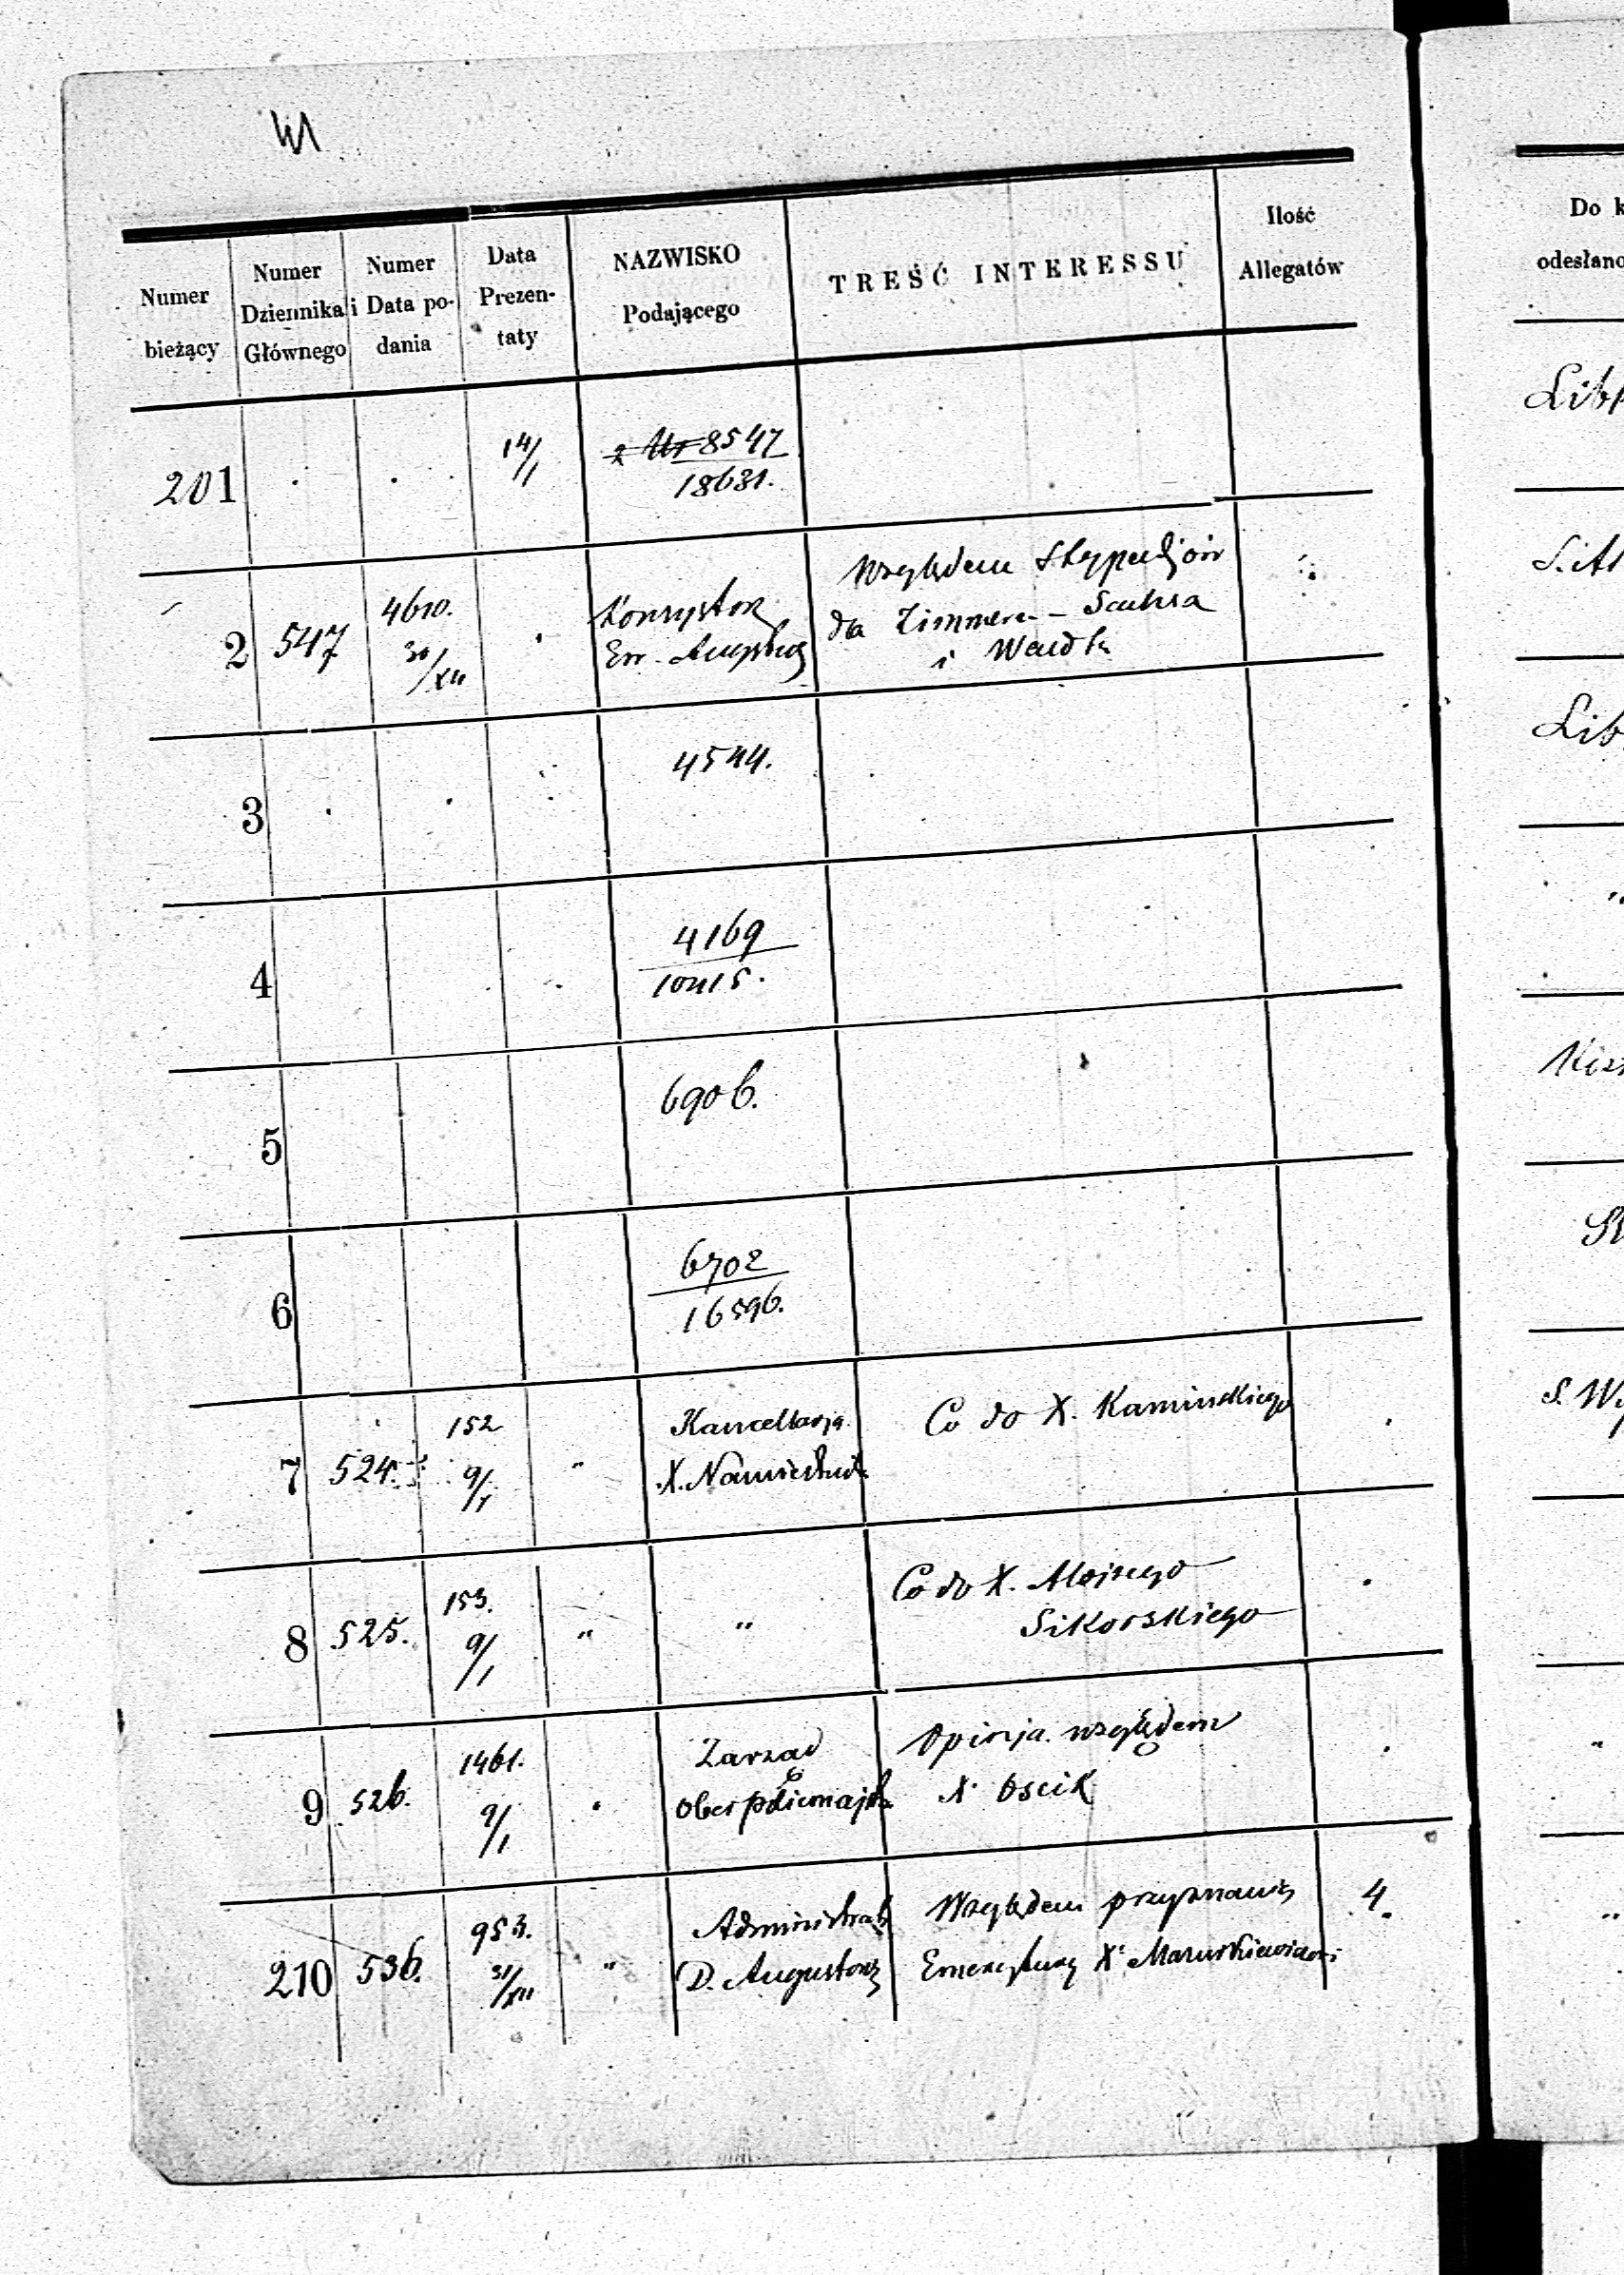 Numer
bieżący
Numer
Dziennika
Głównego
Numer
i Data po-
dania
Data
Prezen-
taty
NAZWISKO
Podającego
TREŚĆ INTERESSU
Ilość
Allegatów
Do
odesłano
201 14/1 8547
18631.
2 547 4610. 30/XII Konsystorz
Ew. Augsburg
Względem Stypendjów
dla Zimmera - Sachsa
i Wendta
3 4544.
4 4169
10415.
5 6906.
6 6702
16596.
7 524. 152 9/1 " Kancellarja
X. Namiestnika
Co do X. Kamińskiego
8 525. 153. 9/1 " "
Co do X. Alojzego
Sikorskiego
9 526. 1461. 9/1 Zarząd
Oberpolicmajstra
Opinja względem
X. Oscik
210 536. 953. 31/XII " Administrator
D. Augustows
Względem przyznania
Emerytury X. Mazurkiewiczowi
4.